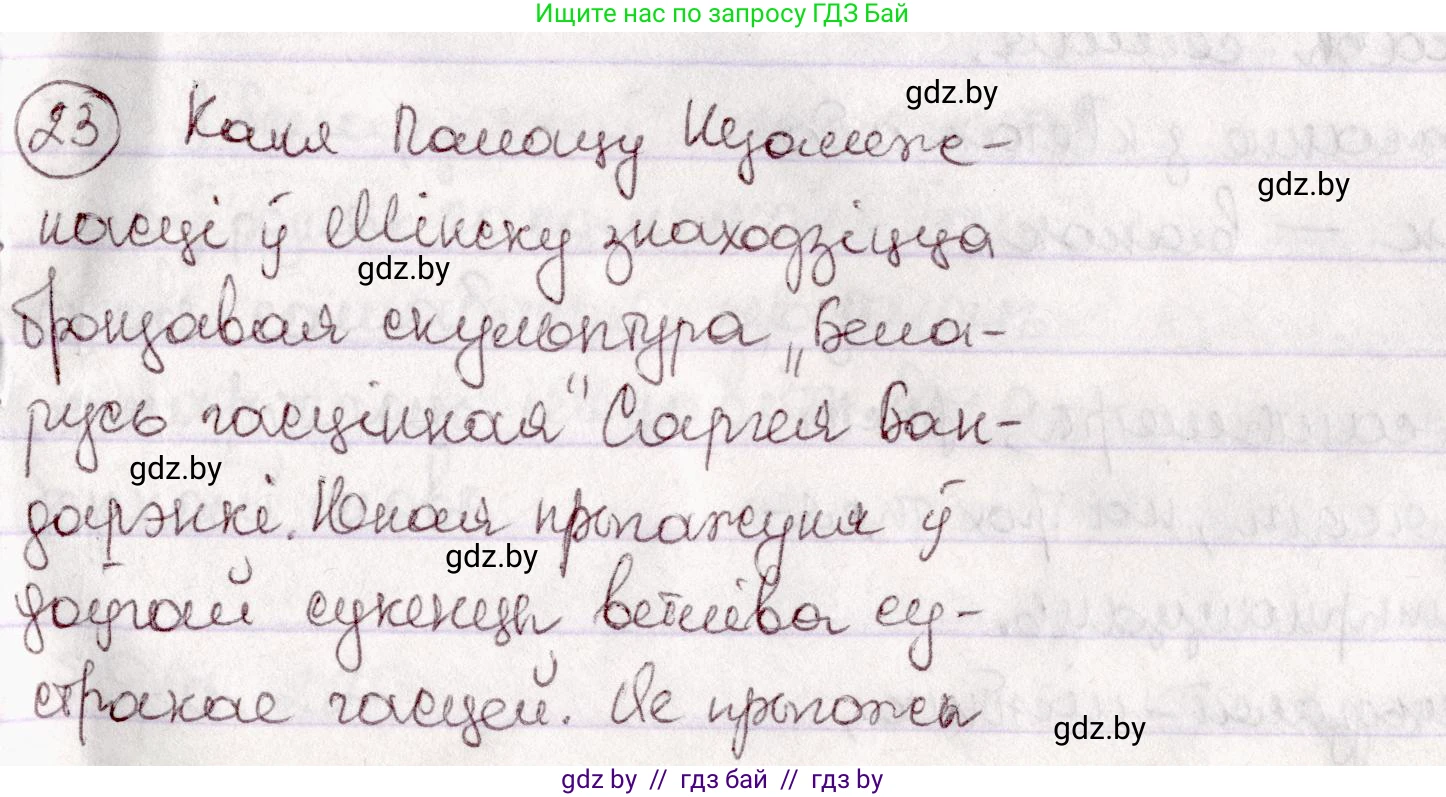 Ищите нас по запросу ГДЗ Бай
gdz.by
23 Каля Палацу Незалеж-
gdz.by
насці ў Мінску знаходзіцца
gdz.by
бронзавая скульптура „Бела-
русь гасцінная" Сяргея Бан-
gdz.by
дарэнкі. Юная прыгажуня ў
gdz.by
доўгай сукенцы ветліва су-
стракае гасцей. Яе прыгожы
gdz.by
gdz by // гдз бай // гдз by